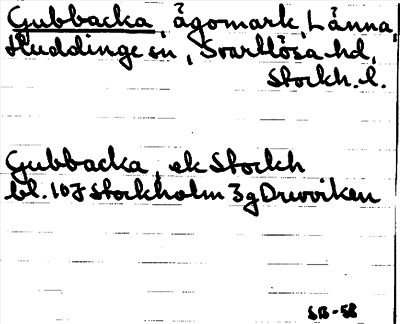 Gubbacka, ägomark, Länna,
Huddinge sn, Svartlösa hd,
Stockh. l.
Gubbacka, ek Stockh
bl. 10J Stockholm 3g Drevviken
SB-58